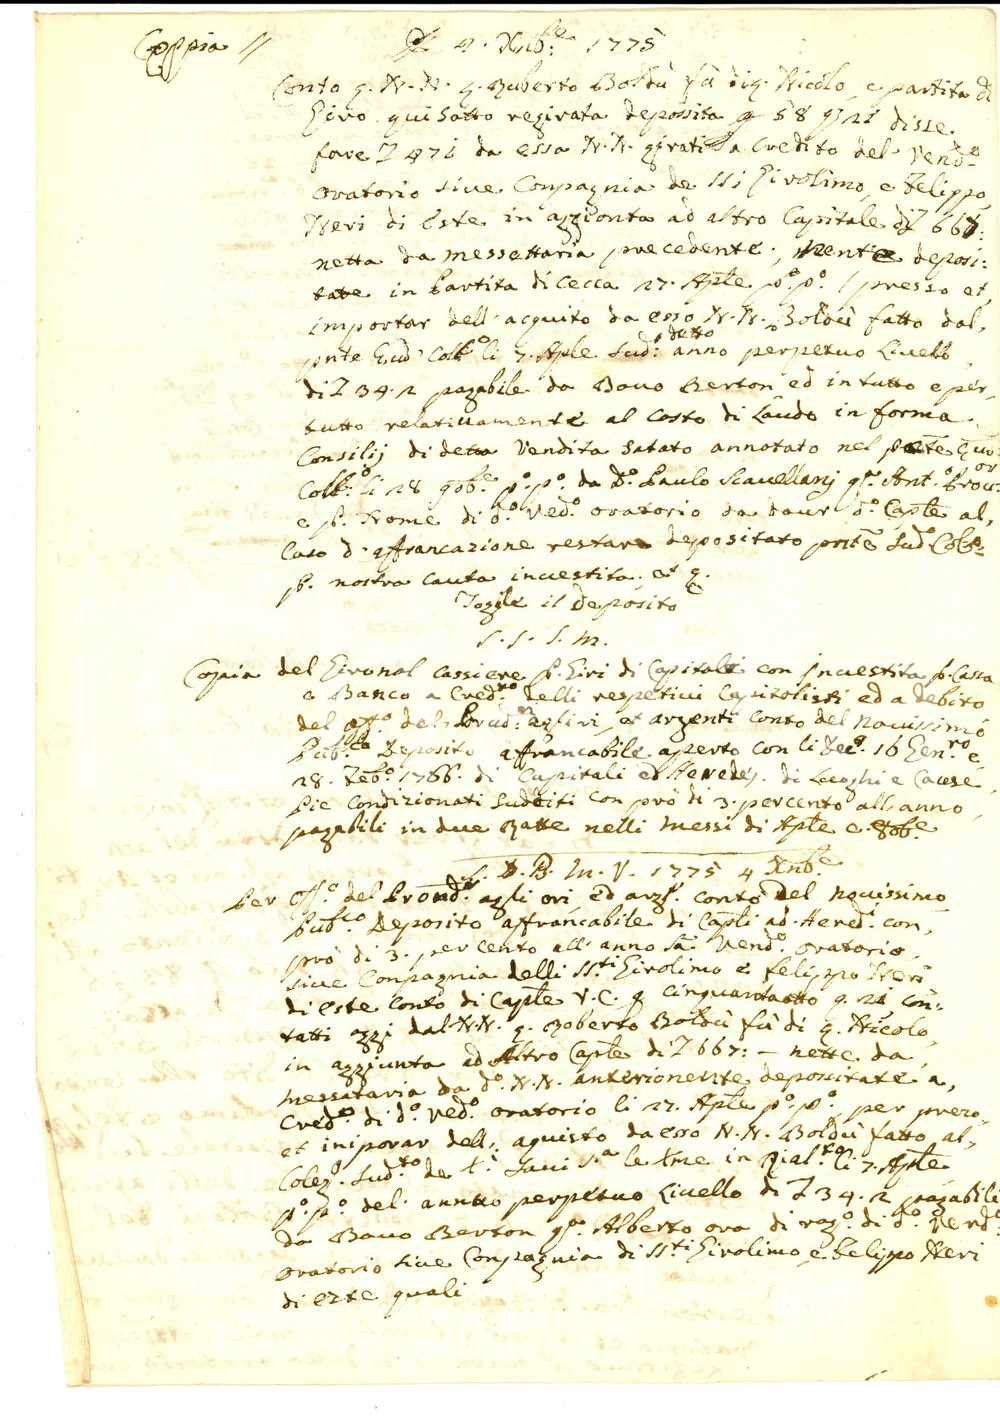 Coppia //
A 4. Xnb:e 1775
Conto q. N. N. q. Ruberto Boldù fù di q. Nicolo, e partita di
Giro qui sotto regirata deposita q 58 g 21 disse
fare Z 471 da essa N. N. girati a Credito del Vend:o
Oratorio siue Conpagnia de SSi Girolimo, e Felippo
Neri di Este in aggionta ad altro Capitale di Z 667:
netta da messettaria precedente, deposi:
tate in Partita di Cecca 27. Aple p:o p:o / presso et
importar dell' acquito da esso N. N. Boldù fatto dal,
pnte Coll:o li 7. Aple sud:o detto anno perpetuo Livello
di Z 34. 2 pagabile da Bauo Berton ed in tutto e per,
tutto relatiuamente al Costo di Laudo in forma
Consilij di detta Vendita Satato annotato nel
Coll:o li 28 9obe p:o p:o da D:o Paulo Scauellarij q:m Ant:o Procu:or
e p. Nome di d:o Ved:o Oratorio da dour d:o Caple al,
Caso d'affrancazione restare depositato pnte Sud:o Coll:o
p. nostra Cauta inuestita. et q.
Togile il Deposito
S. S. S. M.
Copia del Gironal Cassiere p. Giri di Capitali con Inuestita p. Cassa
e Banco a Cred:to delli respetiui Capitalisti ed a debito
del off:o del Proud:r agli ori, et argenti Conto del Nouissimo
Pub:co Deposito affrancabile aperto con li Dec:o 16 Gen:ro e
28. Feb:o 1766. di Capitali ed Heredes. di Luoghi e Cause,
Pie Condizionati Sudditi con prò di 3. percento all' anno,
pagabili in due Ratte nelli Messi di Aple e 8obe
L. D. B. In. V. 1775 4 Xnb:e
Per Off:o del Proud:r agli ori, ed arg:ti Conto del nouissimo
Pub:co Deposito affrancabile di Capli ad Hered: con,
prò di 3. per cento all' anno Sà Vend:o Oratorio,
siue Conpagnia delli SS:ti Girolimo e Felippo Neri
di Este Conto di Caple V. C. q cinquantaotto g. 21 con:
tatti ggi dal N. N. q. Roberto Boldù fù di q. Nicolo,
in aggiunta ad Altro Caple di Z 667: — nette da,
messataria da d:o N. N. anterionente depositate a,
Cred:o di d:o Ved:o Oratorio li 27. Aple p:o p:o, per prezo
et iniporar dell: aquisto da esso N. N. Boldù fatto al,
Coleg: Sud:to de t:i Saui s:a le tme in Rial:to li 7. Aple
p:o p:o del annuo perpetuo Livello di Z 34. 2 pagabili
da Bauo Berton q:m Alberto ora di rag:o di d:o Vend:o
Oratorio siue Conpagnia di SS:ti Girolimo, e Felippo Neri
di Este quali